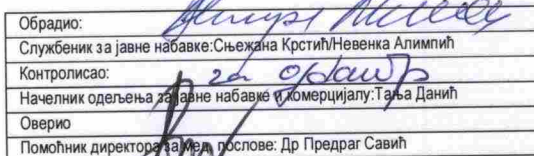 Обрадио:
Службеник за јавне набавке:Сњежана Крстић/Невенка Алимпић
Контролисао:
Начелник одељења за јавне набавке и комерцијалу:Таља Данић
Оверио
Помоћник директора за мед. послове: Др Предраг Савић